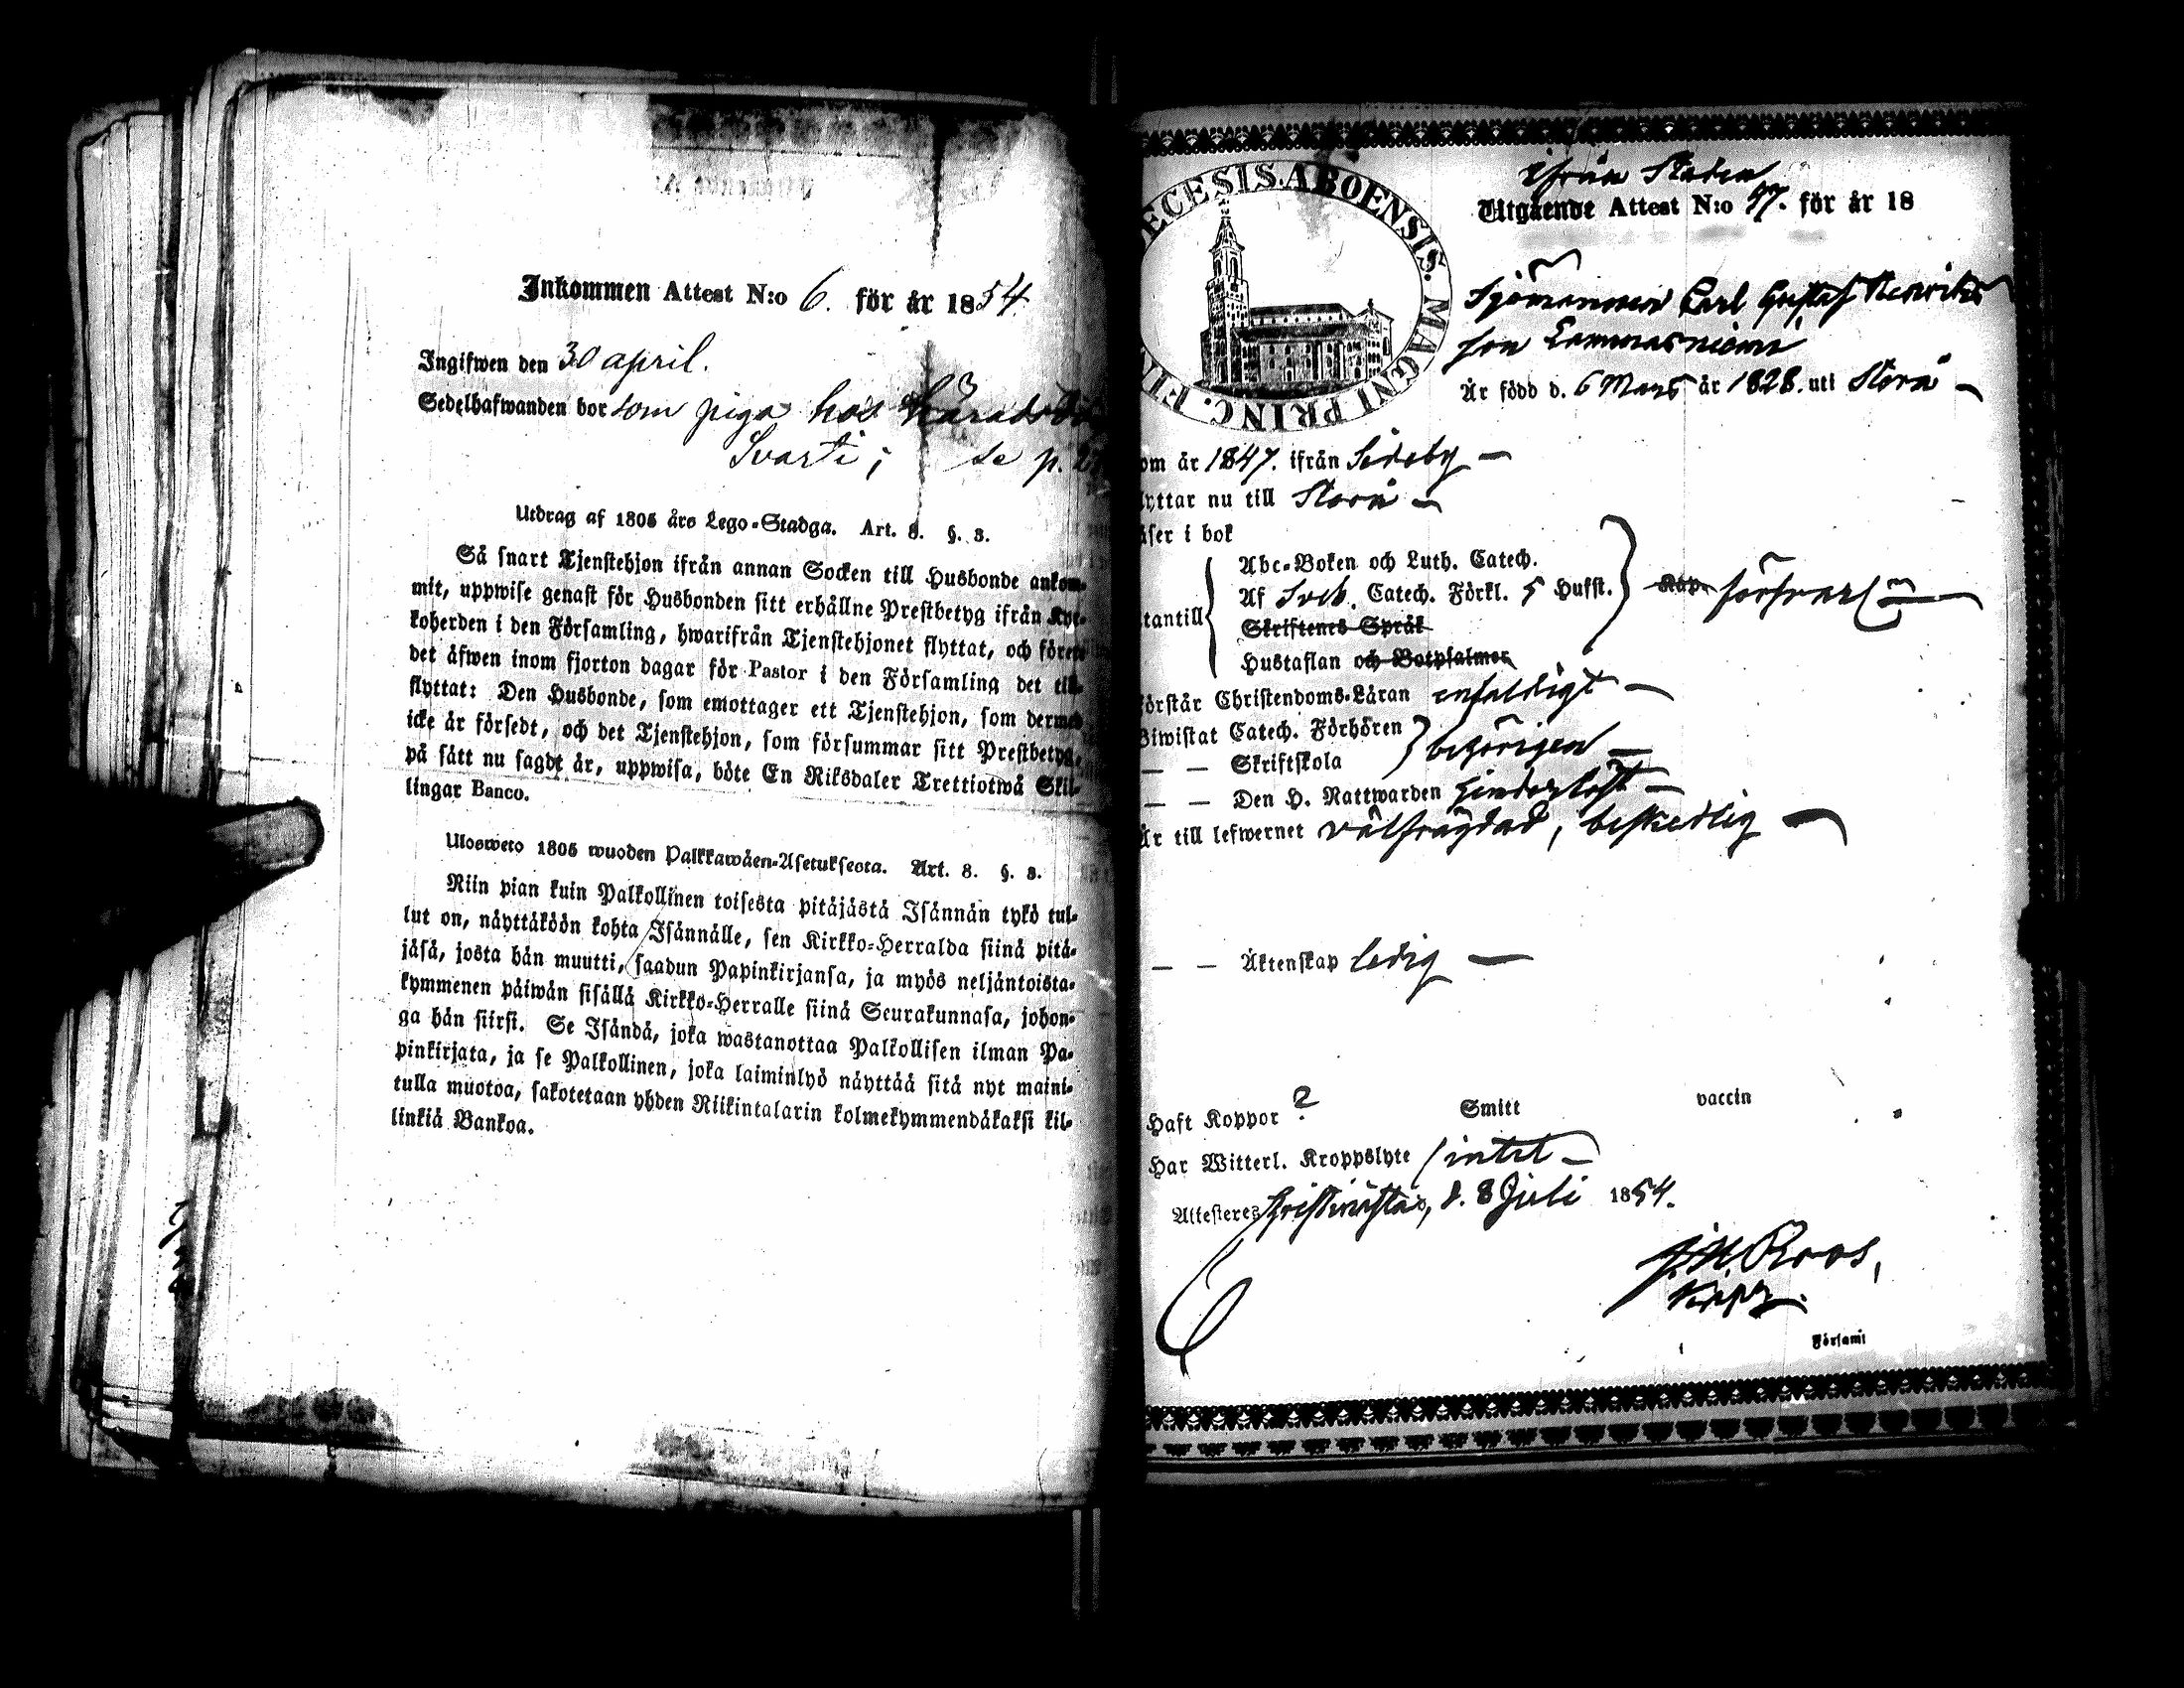 Inkommen Attest N:o 6. för år 1854
Ingifwen den 30 april.
Sedelhafwanden bor som piga hos
Svarti; se p.
Utdrag af 1805 års Lego-Stadga. Art. 8. §. 3.
Så snart Tjenstehjon ifrån annan Socken till Husbonde ankom-
mit, uppwise genast för Husbonden sitt erhållne Prestbetyg ifrån Kyr-
koherden i den Församling, hwarifrån Tjenstehjonet flyttat, och förete
det äfwen inom fjorton dagar för Pastor i den Församling det till-
flyttat: Den Husbonde, som emottager ett Tjenstehjon, som dermed
icke är försedt, och det Tjenstehjon, som försummar sitt Prestbetyg,
på sätt nu sagdt är, uppwisa, böte En Riksdaler Trettiotwå Skil-
lingar Banco.
Ulosweto 1805 wuoden Palkkawäen-Asetuksesta. Art. 8. §. 3.
Niin pian kuin Palkollinen toisesta pitäjästä Isännän tykö tul-
lut on, näyttäköön kohta Isännälle, sen Kirkko-Herralda siinä pitä-
jäsä, josta hän muutti, saadun Papinkirjansa, ja myös neljäntoista-
kymmenen päiwän sisällä Kirkko-Herralle siinä Seurakunnasa, johon-
ga hän siirsi. Se Isändä, joka wastanottaa Palkollisen ilman Pa-
pinkirjata, ja se Palkollinen, joka laiminlyö näyttää sitä nyt maini-
tulla muotoa, sakotetaan yhden Riikintalarin kolmekymmendäkaksi kil-
linkiä Bankoa.
ECESIS. ABOENSIS. MAGNI PRINC. FI
ifrån Staden
Utgående Attest N:o 57. för år 18
Sjömannen Carl Gustaf Henriks
son Lammasniemi
Är född d. 6 Mars år 1828. uti Storå
om år 1847. ifrån Sideby
lyttar nu till Storå
äser i bok
Abc-Boken och Luth. Catech.
Af Sveb. Catech. Förkl. 5 Hufst. försvarl
tantill
Skriftenes Språk
Hustaflan och Botpsalmer
örstår Christendoms-Läran enfaldigt
Biwistat Catech. Förhören
behörigen
— — Skriftskola
— — Den H. Nattwarden hinderlöst
Är till lefwernet välfrägdad, beskedlig
— — Äktenskap ledig
Haft Koppor ? Smitt vaccin
Har Witterl. Kroppslyte intet
Attesteres Christinestad, d. 8 Juli 1854.
J.H. Roos,
Församl